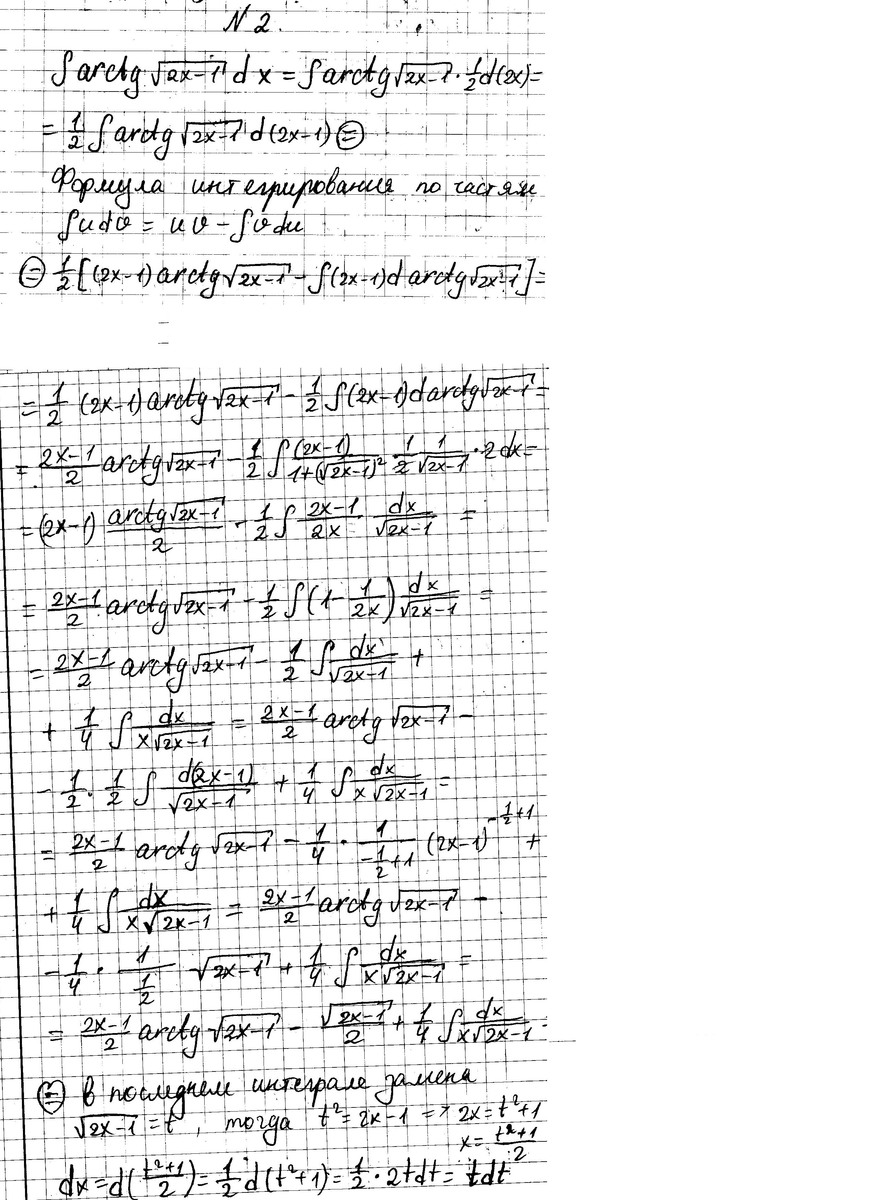 N 2.
∫ arctg √(2x-1) dx = ∫ arctg √(2x-1) · 1/2 d(2x) =
= 1/2 ∫ arctg √(2x-1) d(2x-1) ⊜
Формула интегрирования по частям
∫ u dv = uv - ∫ v du
⊜ 1/2 [(2x-1) arctg √(2x-1) - ∫ (2x-1) d arctg √(2x-1)] =
= 1/2 (2x-1) arctg √(2x-1) - 1/2 ∫ (2x-1) d arctg √(2x-1) =
= (2x-1)/2 arctg √(2x-1) - 1/2 ∫ (2x-1)/(1+(√(2x-1))²) · 1/2 · 1/√(2x-1) · 2dx =
= (2x-1) (arctg √(2x-1))/2 - 1/2 ∫ (2x-1)/(2x) dx/√(2x-1) =
= (2x-1)/2 arctg √(2x-1) - 1/2 ∫ (1 - 1/(2x)) dx/√(2x-1) =
= (2x-1)/2 arctg √(2x-1) - 1/2 ∫ dx/√(2x-1) +
+ 1/4 ∫ dx/(x√(2x-1)) = (2x-1)/2 arctg √(2x-1) -
- 1/2 · 1/2 ∫ d(2x-1)/√(2x-1) + 1/4 ∫ dx/(x√(2x-1)) =
= (2x-1)/2 arctg √(2x-1) - 1/4 · 1/(-1/2+1) (2x-1)^(-1/2+1) +
+ 1/4 ∫ dx/(x√(2x-1)) = (2x-1)/2 arctg √(2x-1) -
- 1/4 · 1/(1/2) √(2x-1) + 1/4 ∫ dx/(x√(2x-1)) =
= (2x-1)/2 arctg √(2x-1) - √(2x-1)/2 + 1/4 ∫ dx/(x√(2x-1)) =
⊜ в последнем интеграле замена
√(2x-1) = t, тогда t² = 2x-1 => 2x = t²+1
x = (t²+1)/2
dx = d((t²+1)/2) = 1/2 d(t²+1) = 1/2 · 2tdt = tdt